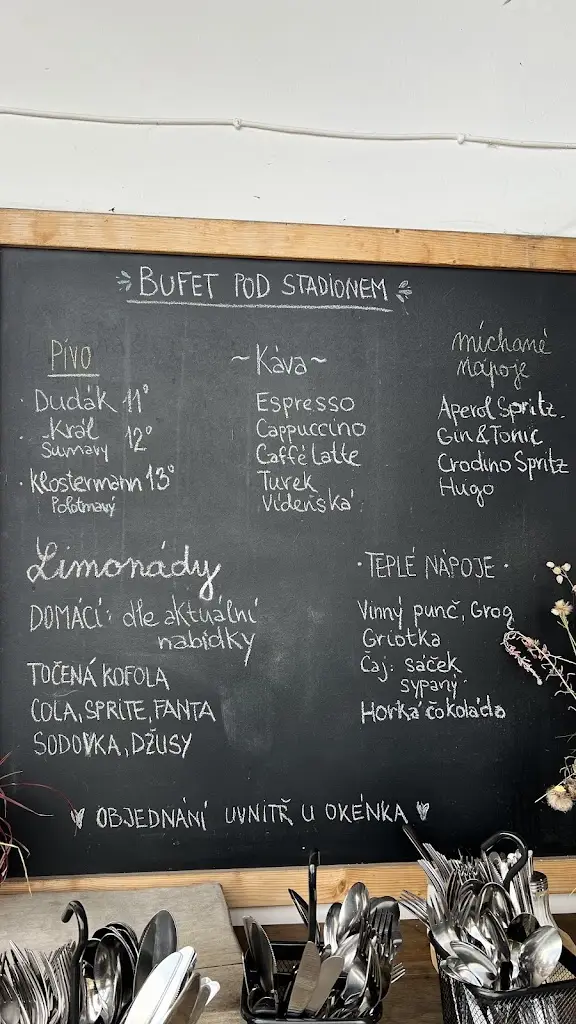 BUFET POD STADIONEM
PÍVO
Dudák 11°
Král 12°
Šumavy
Klostermann 13°
Polotmavý
~ Káva ~
Espresso
Cappuccino
Caffé Latte
Turek
Vídeňská
míchané
nápoje
Aperol Spritz.
Gin & Tonic
Crodino Spritz
Hugo
Limonády
DOMÁCÍ: dle aktuální
nabídky
TOČENÁ KOFOLA
COLA, SPRITE, FANTA
SODOVKA, DŽUSY
· TEPLÉ NÁPOJE ·
Vinný punč, Grog
Griotka
Čaj: sáček
sypaný
Horká čokoláda
♥ OBJEDNÁNÍ UVNITŘ U OKÉNKA ♥